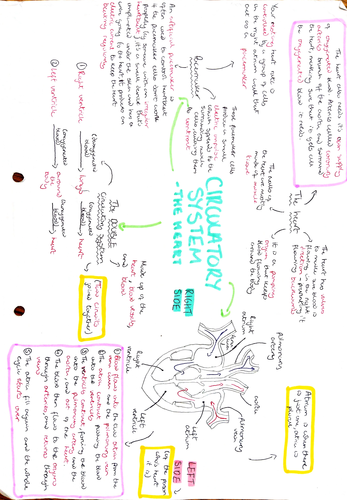 The heart also needs it's own supply
of oxygenated blood. Arteries called coronary
arteries branch off the aorta, and surround
the heart, making sure that it gets all
the oxygenated blood it needs.
The heart
The heart has valves
to make sure blood is
flowing in the right
direction & preventing it
flowing backwards
it is a pumping
organ that keeps
blood flowing
around the body
The walls of
the heart are mostly
made of muscle
tissue
Atrium is where there
is just one, atria is
plural
Your resting heart rate is
controlled by a group of cells
in the right atrium wall that
act as a pacemaker
Pacemaker
These pacemaker cells
produce a small
electric impulse
which spreads to the
surrounding muscle
cells, causing them
to contract
An artificial pacemaker is
often used to control heartbeat
if the pacemaker cells don't work
properly (or someone with an irregular
heartbeat). it's a small device that's
implanted under the skin and has a
wire going to the heart. it produces an
electric current to keep the heart
beating regularly
CIRCULATORY
SYSTEM
-THE HEART
RIGHT
SIDE
LEFT
SIDE
(of the person
whose heart
it is)
Pulmonary
artery
aorta
Pulmonary
vein
Right
atrium
Left
atrium
Right
ventricle
Left
ventricle
The DOUBLE
Circulatory system
Made up of the
heart, blood vessels
and blood
Two circuits
joined together
① Right ventricle
deoxygenated
blood
lungs
oxygenated
blood
heart
② Left ventricle
oxygenated
blood
around the
body
deoxygenated
blood
heart
① Blood flows into the two atria from the
vena cava and the pulmonary vein
② The atria contract, pushing the blood
into the ventricles
③ The ventricles contract, forcing the blood
into the pulmonary artery and the
aorta, and out of the heart
④ The blood then flows to the organs
through arteries, and returns through
veins
⑤ The atria fill again and the whole
cycle starts over